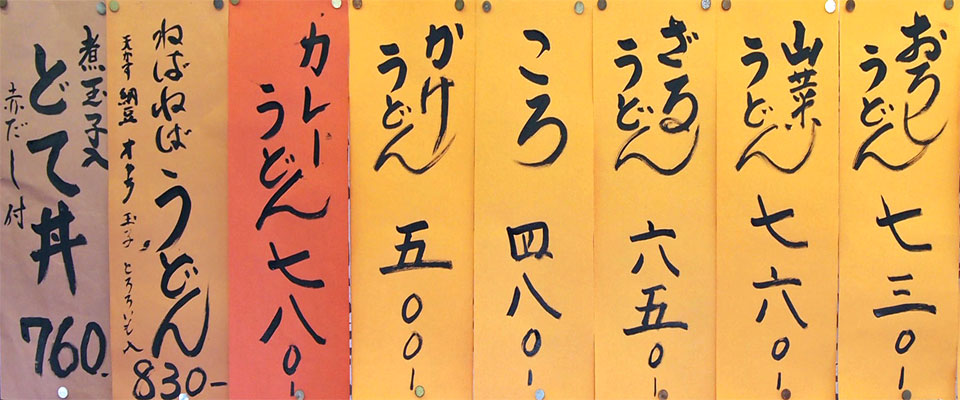 おろし
うどん
七三0-
山菜
うどん
七六0-
ざる
うどん
六五0-
ころ
四八0-
かけ
うどん
五00-
カレー
うどん七八0-
ねばねばうどん
天かす 納豆 オクラ 玉子 とろろいも入
830-
煮玉子入
どて丼
赤だし付
760-